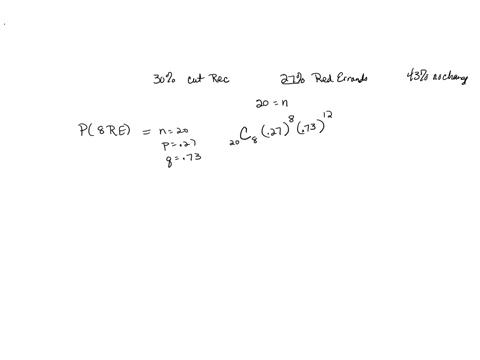 30% cut Rec 27% Red Errands 43% no chang
20 = n
P(8RE) = n=20 ₂₀C₈ (.27)⁸ (.73)¹²
p=.27
q=.73